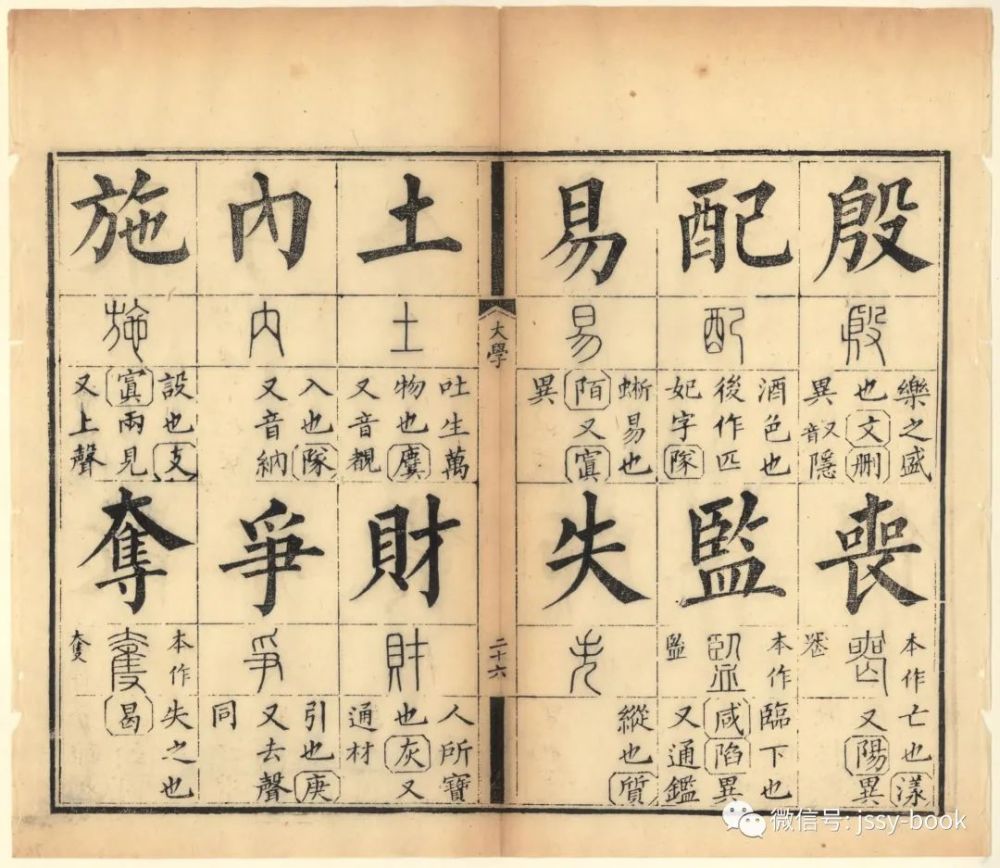 殷
殷
樂之盛
也文刪
異又音隱
喪
本作
喪
亡也漾
又陽異
配
配
酒色也
後作匹
妃字隊
監
本作
監
監
臨下也
咸陷異
又通鑑
易
易
蜥易也
陌又寘
異
失
失
縱也質
大學
二十六
土
土
吐生萬
物也麌
又音覩
財
財
人所寶
也灰又
通材
內
內
入也隊
又音納
爭
爭
引也庚
又去聲
同
施
施
設也支
寘兩見
又上聲
奪
本作
奪
失之也
曷
微信号: jssy-book